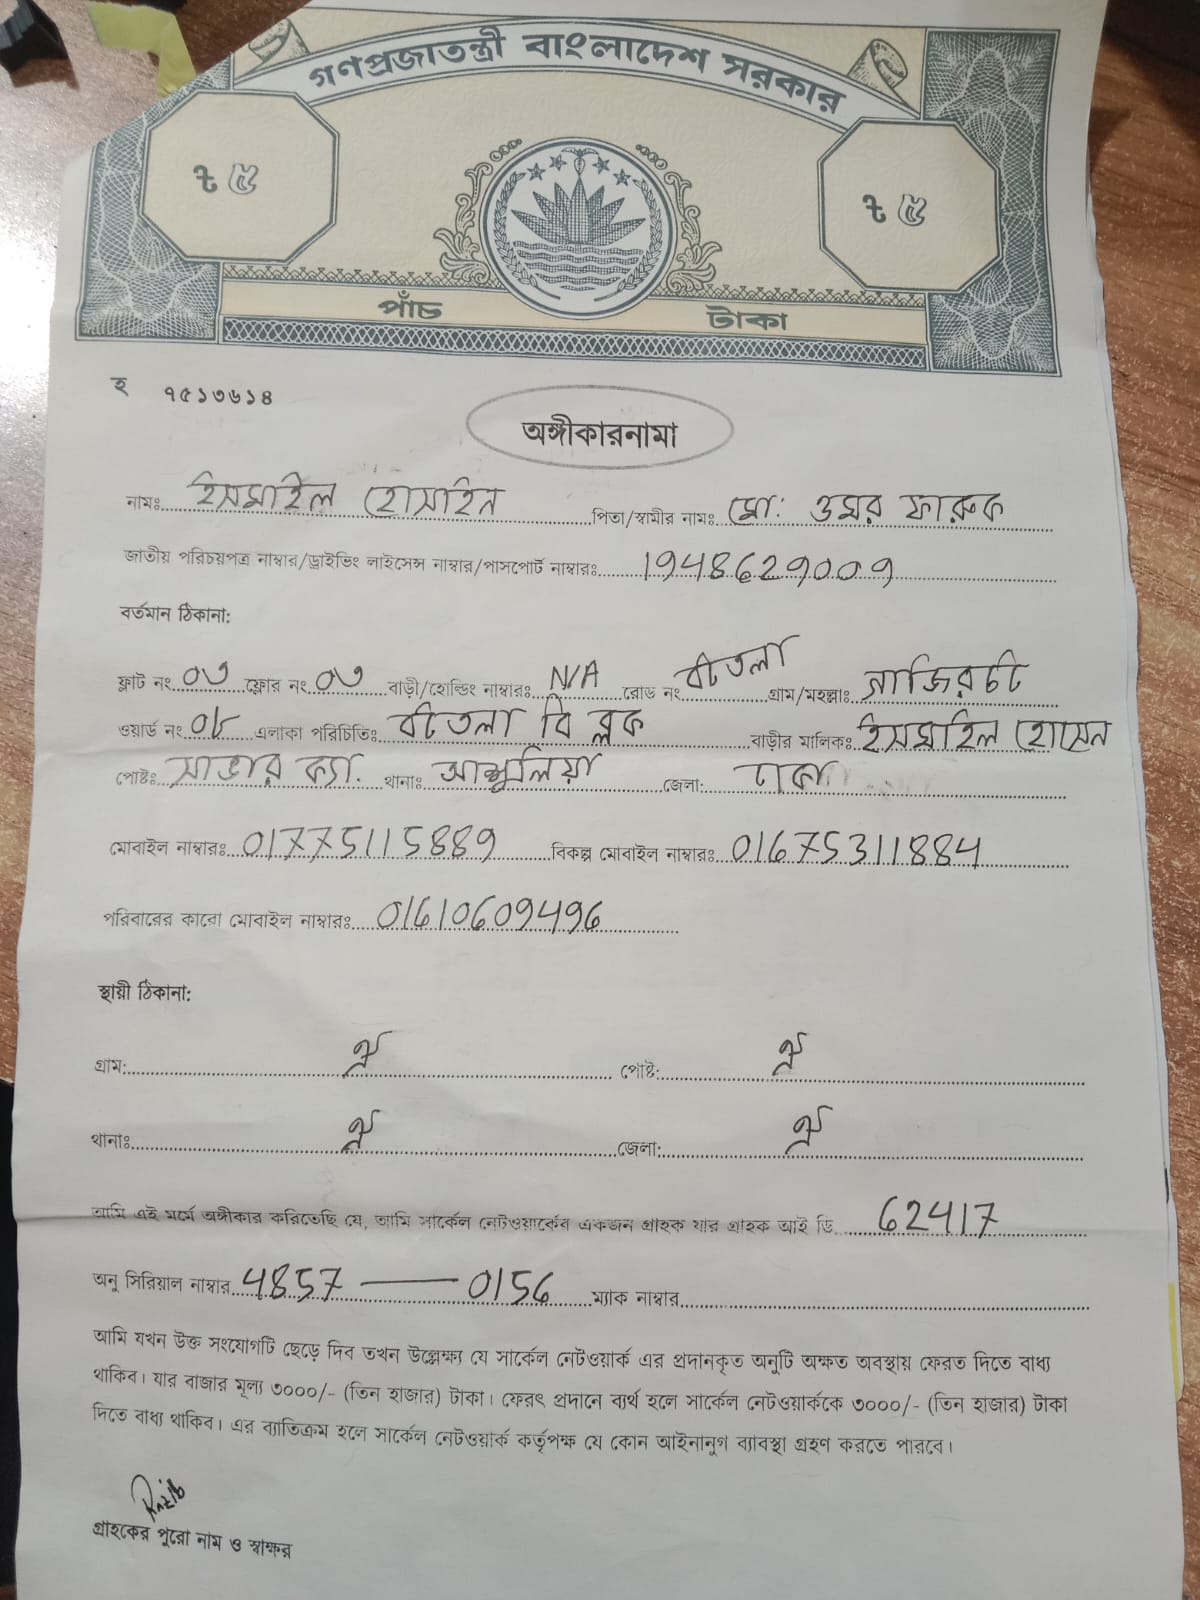 গণপ্রজাতন্ত্রী বাংলাদেশ সরকার
৳ ৫ ৳ ৫
পাঁচ টাকা
হ ৭৫১৩৬১৪
অঙ্গীকারনামা
নামঃ ইসমাইল হোসাইন পিতা/স্বামীর নামঃ মো: ওমর ফারুক
জাতীয় পরিচয়পত্র নাম্বার/ড্রাইভিং লাইসেন্স নাম্বার/পাসপোর্ট নাম্বারঃ 1948629009
বর্তমান ঠিকানা:
ফ্লাট নং ০৩ ফ্লোর নং ০৩ বাড়ী/হোল্ডিং নাম্বারঃ N/A রোড নং বটতলা গ্রাম/মহল্লাঃ গাজিরচট
ওয়ার্ড নং ০৮ এলাকা পরিচিতিঃ বটতলা বি ব্লক বাড়ীর মালিকঃ ইসমাইল হোসেন
পোষ্টঃ সাভার ক্যা. থানাঃ আশুলিয়া জেলা: ঢাকা
মোবাইল নাম্বারঃ 01775115889 বিকল্প মোবাইল নাম্বারঃ 01675311884
পরিবারের কারো মোবাইল নাম্বারঃ 01610609496
স্থায়ী ঠিকানা:
গ্রাম: ঐ পোষ্ট: ঐ
থানাঃ ঐ জেলা: ঐ
আমি এই মর্মে অঙ্গীকার করিতেছি যে, আমি সার্কেল নেটওয়ার্কের একজন গ্রাহক যার গ্রাহক আই ডি 62417
অনু সিরিয়াল নাম্বার 4857 — 0156 ম্যাক নাম্বার
আমি যখন উক্ত সংযোগটি ছেড়ে দিব তখন উল্লেক্ষ্য যে সার্কেল নেটওয়ার্ক এর প্রদানকৃত অনুটি অক্ষত অবস্থায় ফেরত দিতে বাধ্য
থাকিব। যার বাজার মূল্য ৩০০০/- (তিন হাজার) টাকা। ফেরৎ প্রদানে ব্যর্থ হলে সার্কেল নেটওয়ার্ককে ৩০০০/- (তিন হাজার) টাকা
দিতে বাধ্য থাকিব। এর ব্যাতিক্রম হলে সার্কেল নেটওয়ার্ক কর্তৃপক্ষ যে কোন আইনানুগ ব্যাবস্থা গ্রহণ করতে পারবে।
গ্রাহকের পুরো নাম ও স্বাক্ষর